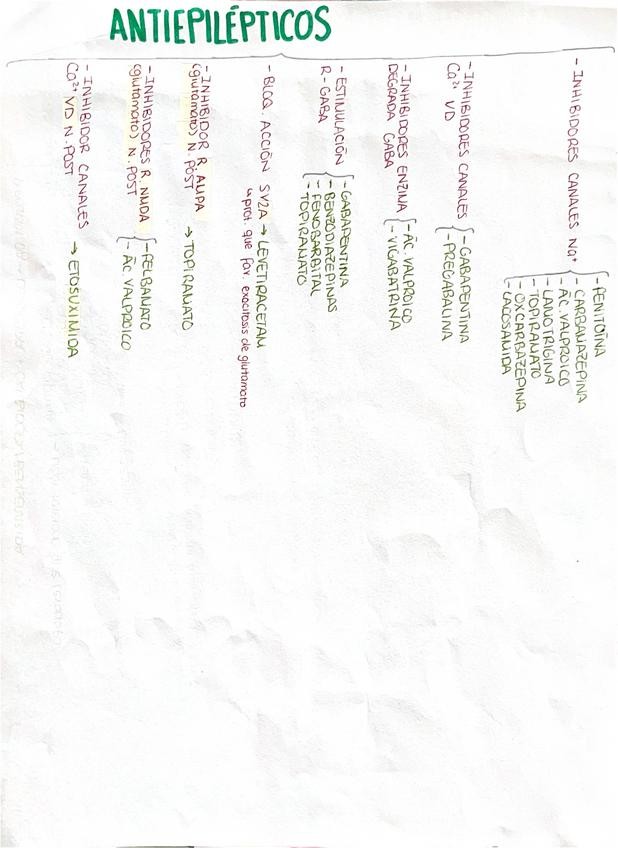 ANTIEPILÉPTICOS
- INHIBIDORES CANALES Na⁺
- FENITOÍNA
- CARBAMAZEPINA
- ÁC. VALPROICO
- LAMOTRIGINA
- TOPIRAMATO
- OXCARBAZEPINA
- LACOSAMIDA
- INHIBIDORES CANALES
Ca²⁺ VD
- GABAPENTINA
- PREGABALINA
- INHIBIDORES ENZIMA
DEGRADA GABA
- ÁC. VALPROICO
- VIGABATRINA
- ESTIMULACIÓN
R-GABA
- GABAPENTINA
- BENZODIAZEPINAS
- FENOBARBITAL
- TOPIRAMATO
- BLOQ. ACCIÓN SV2A → LEVETIRACETAM
↳ prot. que fav. exocitosis de glutamato
- INHIBIDOR R. AMPA
(glutamato) N. POST
→ TOPIRAMATO
- INHIBIDORES R. NMDA
(glutamato) N. POST
- FELBAMATO
- ÁC. VALPROICO
- INHIBIDOR CANALES
Ca²⁺ VD N. POST
→ ETOSUXIMIDA